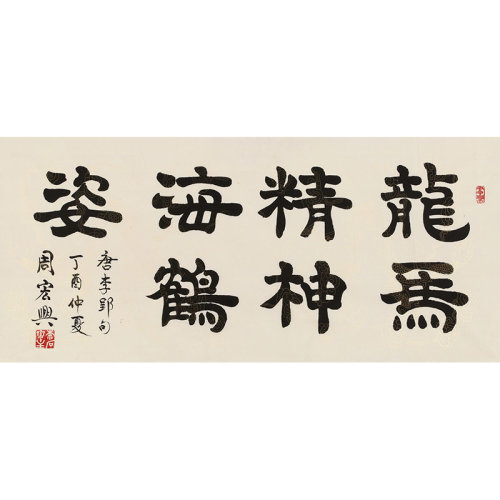 龍馬
精神
海鶴
姿
唐李郢句
丁酉仲夏
周宏興